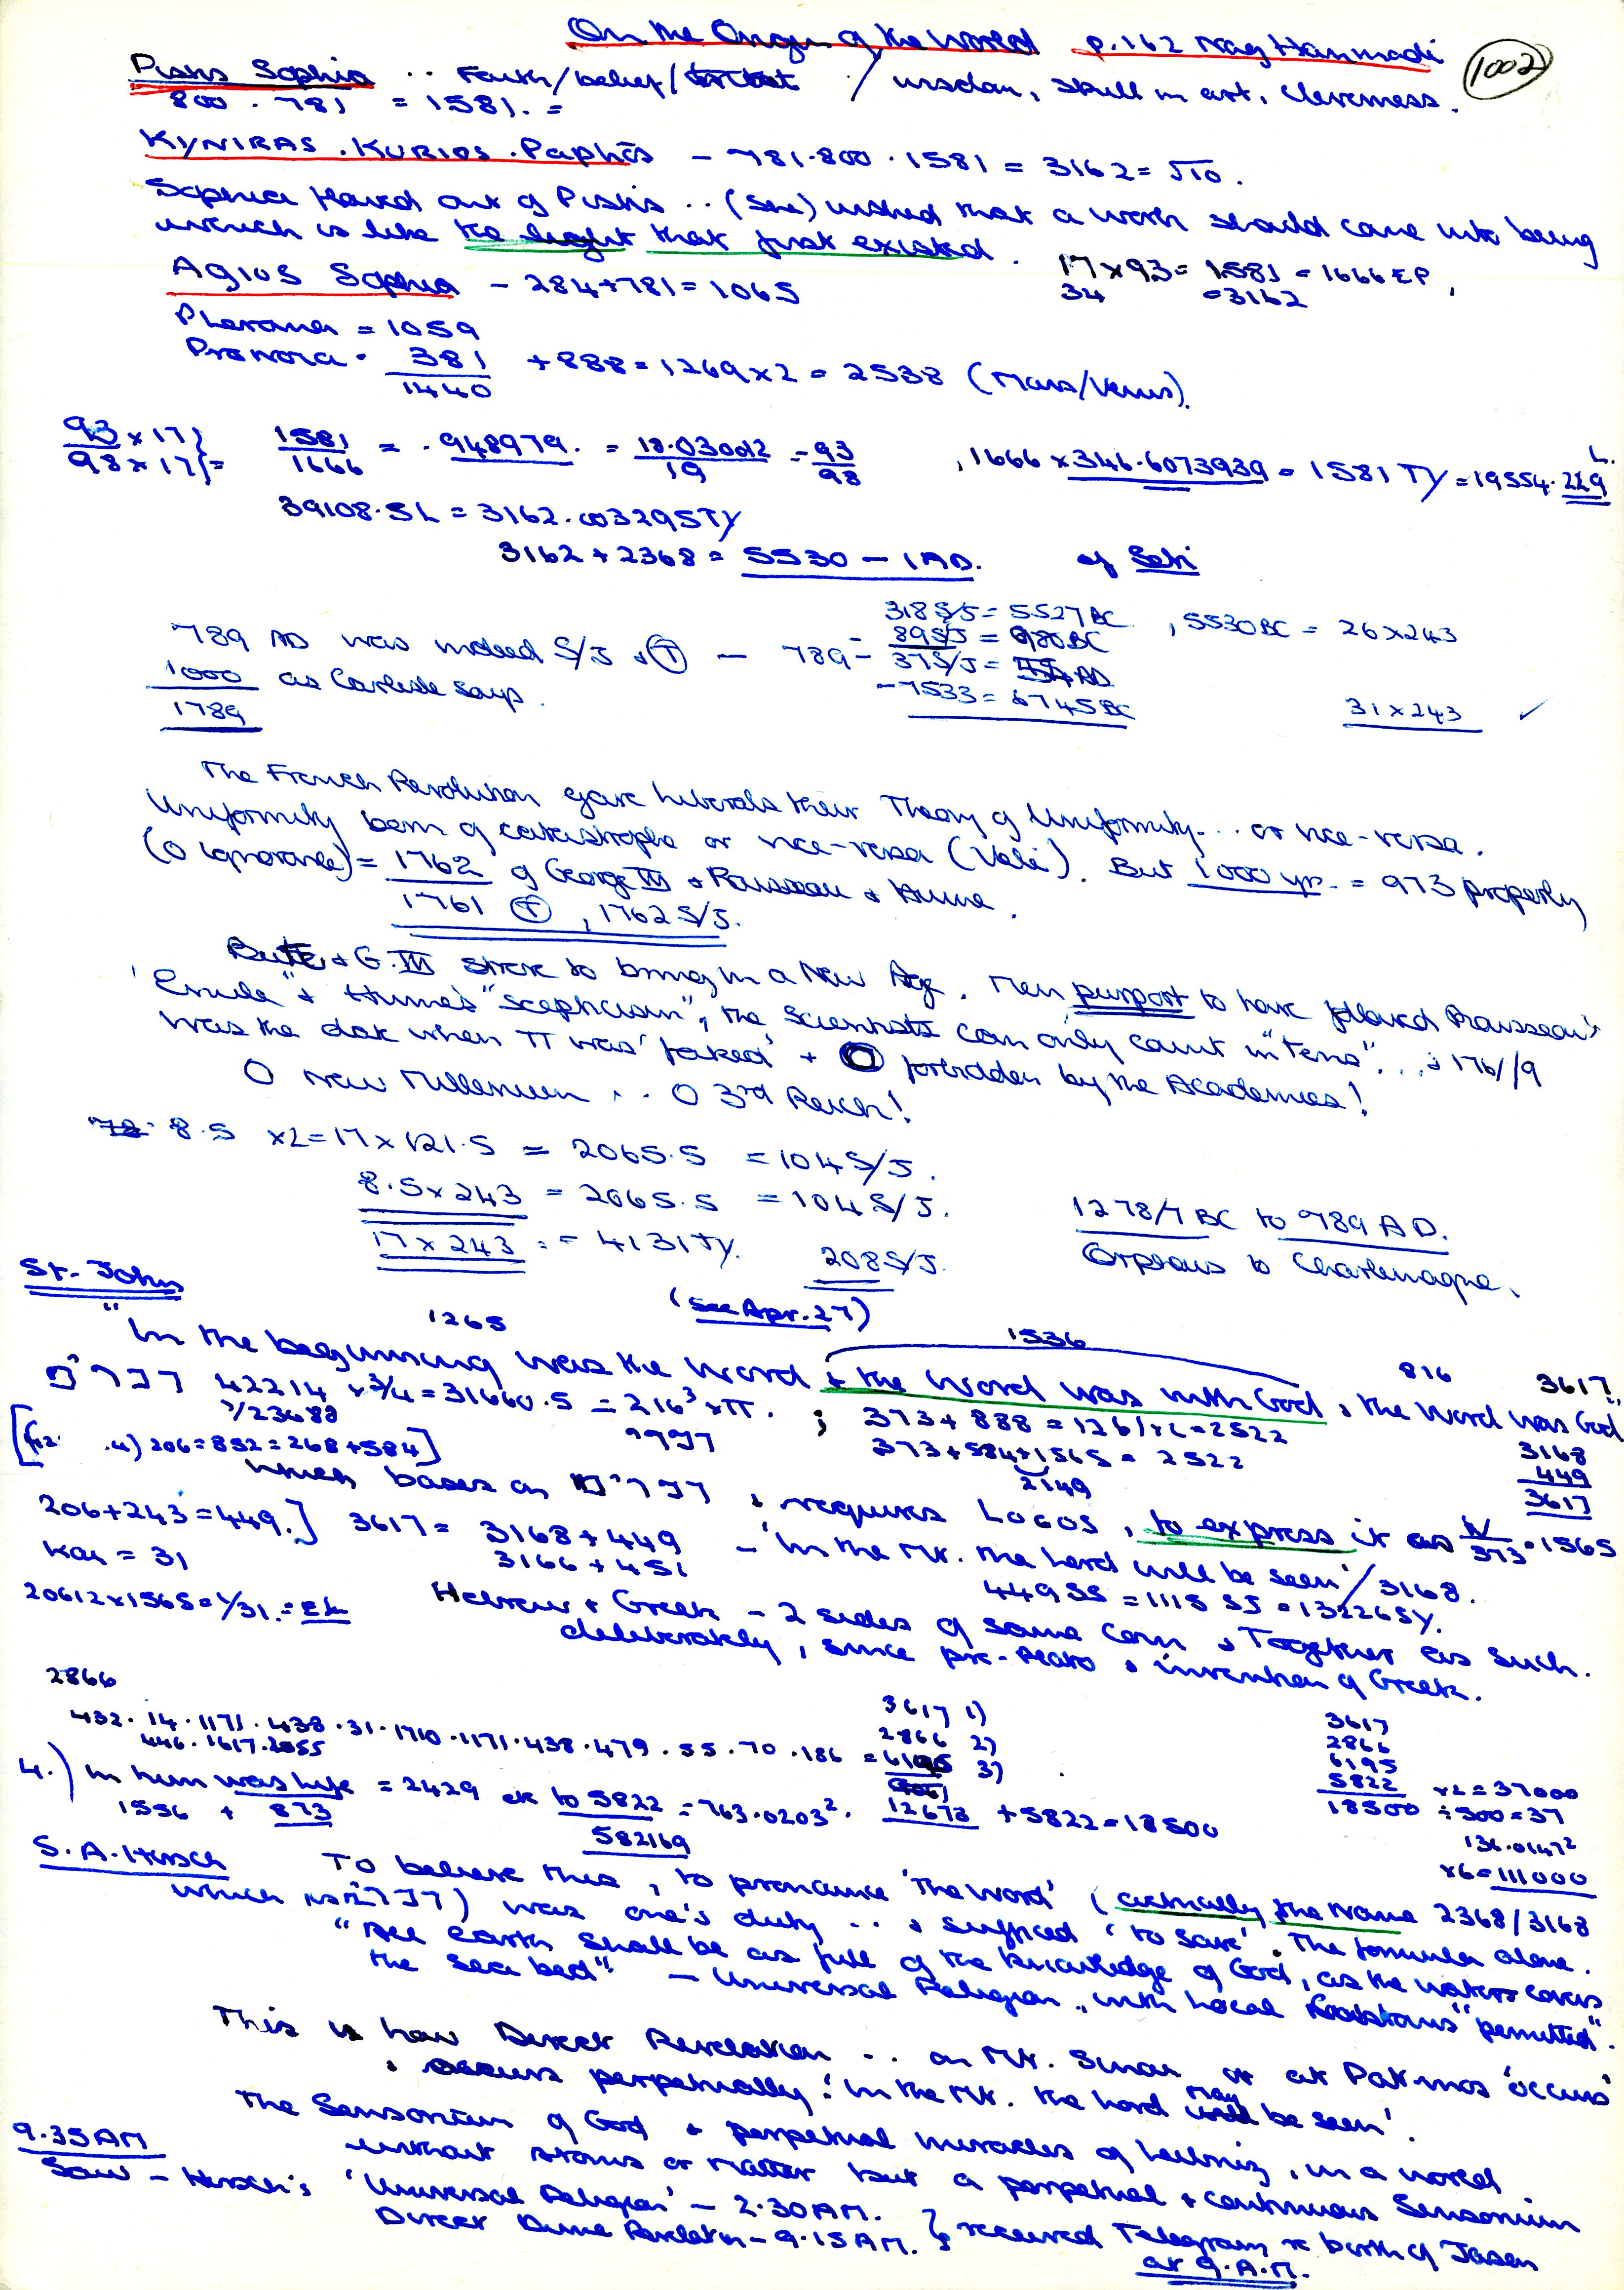 On the Origin of the World p.162 Nag Hammadi
1002
Pistis Sophia .. Faith/belief/ / wisdom, skill in art, cleverness.
800 . 781 = 1581. =
KYNIRAS . KURIOS . Paphos - 781.800.1581 = 3162 = √10.
Sophia flowed out of Pistis .. (she) wished that a work should come into being
which is like the light that first existed.
17 x 93 = 1581 = 1666 EP,
34 = 3162
Agios Sophia - 284+781 = 1065
= 1059
Pronoia . 381 + 888 = 1269 x 2 = 2538 (Mars/Venus).
1440
93 x 17 } = 1581 = .948979. = 18.030612 = 93
98 x 17 } 1666 19 98
, 1666 x 346.6073939 = 1581 TY = 19554.229 L.
39108.5L = 3162.003295TY
3162 + 2368 = 5530 - 1AD. of Seti
318 S/J = 5527 BC , 5530BC = 26 x 243
789 AD was indeed S/J + T - 789 - 89S/J = 980BC
37S/J = AD
1000 as Carlisle says.
-7533 = 6745BC 31 x 243 ✓
1789
The French Revolution gave Liberals their Theory of Uniformity... or vice-versa.
Uniformity born of catastrophe or vice-versa (Veli). But 1000 yr. = 973 properly
(O ignorance) = 1762 of George III + Rousseau + Hume.
1761 T, 1762 S/J.
Bute + G.III strove to bring in a New Age. Men purport to have followed Rousseau's
'Emile" + Hume's "scepticism", the Scientists can only count in "Tens"... + 176//9
was the date when π was 'faked' + O forbidden by the Academies!
O New Millenium .. O 3rd Reich!
8.5 x2 = 17 x 121.5 = 2065.5 = 104 S/J.
8.5 x 243 = 2065.5 = 104 S/J.
17 x 243 = 4131 TY. 208 S/J.
1278/7 BC to 789 AD.
Orpheus to Charlemagne.
St. John
(see Apr. 27)
1265 1536 816 3617
"In the beginning was the Word + the Word was with God, the Word was God"
42214 x 3/4 = 31660.5 = 216³ x π. ; 373 + 888 = 1261 x 2 = 2522
1/23688 373+584+1565 = 2522
4) 206 = 852 = 268 + 584] 2149
3168
449
3617
which bases on , requires LOGOS, to express it as N/373 . 1565
206 + 243 = 449.] 3617 = 3168 + 449 - 'In the Mt. the Lord will be seen' / 3168.
Kai = 31 3166 + 451 449 SS = 1115 SJ = 13226SY.
20612 x 1565 = 1/31. = EL
Hebrew + Greek - 2 sides of same coin + Together as such.
deliberately, since pre-Plato + invention of Greek.
2866
432. 14. 1171. 438. 31. 1710. 1171. 438. 479. 55. 70. 186 = 6195
446. 1617. 2055
3617 1)
2866 2)
6195 3)
12678 + 5822 = 18500
3617
2866
6195
5822 x2 = 37000
18500 ÷ 500 = 37
136.0147²
x6 = 111000
4.) In him was life = 2429 etc to 5822 = 763.0203².
1556 + 873 582169
S.A. Hirsch To believe this, to pronounce 'The Word' (actually the Name 2368/3168
which is ) was one's duty .. + sufficed 'to save'. The formula alone.
"All earth shall be as full of the knowledge of God, as the waters covers
the sea bed". - Universal Religion, with local "permitted".
This is how Direct Revelation .. on Mt. Sinai or at Patmos 'occurs'
+ occurs perpetually: 'In the Mt. the Lord may be seen'.
The Sensorium of God + perpetual miracles of Leibniz, in a world
without atoms or matter but a perpetual + continuous Sensorium
9.35AM
Saw - Hirsch's 'Universal Religion' - 2.30AM.
Direct Divine Revelation - 9.15AM. } received Telegram re birth of Jason
at 9.A.M.